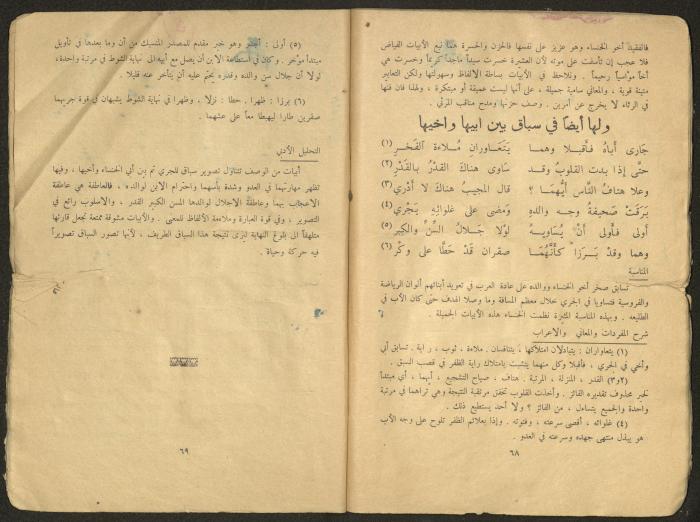 فالفقيد أخو الخنساء وهو عزيز على نفسها فالحزن والحسرة هما نبع الأبيات الفياض
فلا عجب إن تأسفت على موته لأن العشيرة خسرت سيداً ماجداً كريماً وخسرت هي
أخاً مواسياً رحيماً . ونلاحظ في الأبيات بساطة الألفاظ وسهولتها ولكن التعابير
متينة قوية ، والمعاني سامية جميلة ، على أنها ليست عميقة أو مبتكرة ، ولهذا فان فنها
في الرثاء لا يخرج عن أمرين . وصف حزنها ومدح مناقب المرثي .
ولها أيضاً في سباق بين ابيها واخيها
جارى أباهُ فأقبلا وهما يتعاورانِ مُلاءةَ الفخرِ (١)
حتى إذا بدت القلوبُ وقد ساوى هناك القدرُ بالقدرِ (٢)
وعلا هتافُ الناس أيُّهما ؟ قال المجيبُ هناك لا أدري (٣)
برقتْ صحيفةُ وجهِ والدهِ ومضى على غلوائهِ يجري (٤)
أولى فأولى أنْ يُساويهُ لولا جلالُ السنِّ والكبرِ (٥)
وهما وقدْ برزا كأنهما صقرانِ قدْ حطّا على وكرِ (٦)
المناسبة
تسابق صخر أخو الخنساء ووالده على عادة العرب في تعويد أبنائهم ألوان الرياضة
والفروسية فتساويا في الجري خلال معظم المسافة وما وصلا الهدف حتى كان الأب في
الطليعه . وبهذه المناسبة المثيرة نظمت الخنساء هذه الأبيات الجميلة .
شرح المفردات والمعاني والاعراب
(١) يتعاوران : يتبادلان امتلاكها ، يتنافسان . ملاءة ، ثوب ، راية . تسابق أبي
وأخي في الجري ، فأقبلا وكل منهما يتشبث بامتلاك راية الظفر في قصب السبق .
(٢و٣) القدر ، المنزلة ، المرتبة . هتاف ، صياح التشجيع ، أيهما ، أي مبتدأ
لخبر محذوف تقديره الفائز . وأخذت القلوب تخفق مرتقبة النتيجة وهي تراهما في مرتبة
واحدة والجميع يتساءل ، من الفائز ؟ ولا أحد يستطيع ذلك .
(٤) غلوائه ، أقصى سرعته ، وفتوته . وإذا بعلائم الظفر تلوح على وجه الأب
هو يبذل منتهى جهده وسرعته في العدو .
٦٨
(٥) أولى : أجدر وهو خبر مقدم للمصدر المنسبك من أن وما بعدها في تأويل
مبتدأ مؤخر . وكان في استطاعة الابن أن يصل مع أبيه الى نهاية الشوط في مرتبة واحدة ،
لولا أن جلال سن والده وقدره يحتم عليه أن يتأخر عنه قليلا .
(٦) برزا : ظهرا . حطا : نزلا . وظهرا في نهاية الشوط يشبهان في قوة جريهما
صقرين طارا ليهبطا معاً على عشهما .
التحليل الأدبي
أبيات من الوصف تتناول تصوير سباق للجري تم بين أبي الخنساء وأخيها ، وفيها
تظهر مهارتهما في العدو وشدة بأسهما واحترام الابن لوالده ، فالعاطفة هي عاطفة
الاعجاب بهما وعاطفة الاجلال لوالدها المسن الكبير القدر ، والاسلوب رائع في
التصوير ، وفي قوة العبارة وملاءمة الألفاظ للمعنى . والأبيات مشوقة ممتعة تجعل قارئها
متلهفاً الى بلوغ النهاية ليرى نتيجة هذا السباق الطريف ، لأنها تصور السباق تصويراً
فيه حركة وحياة .
٦٩